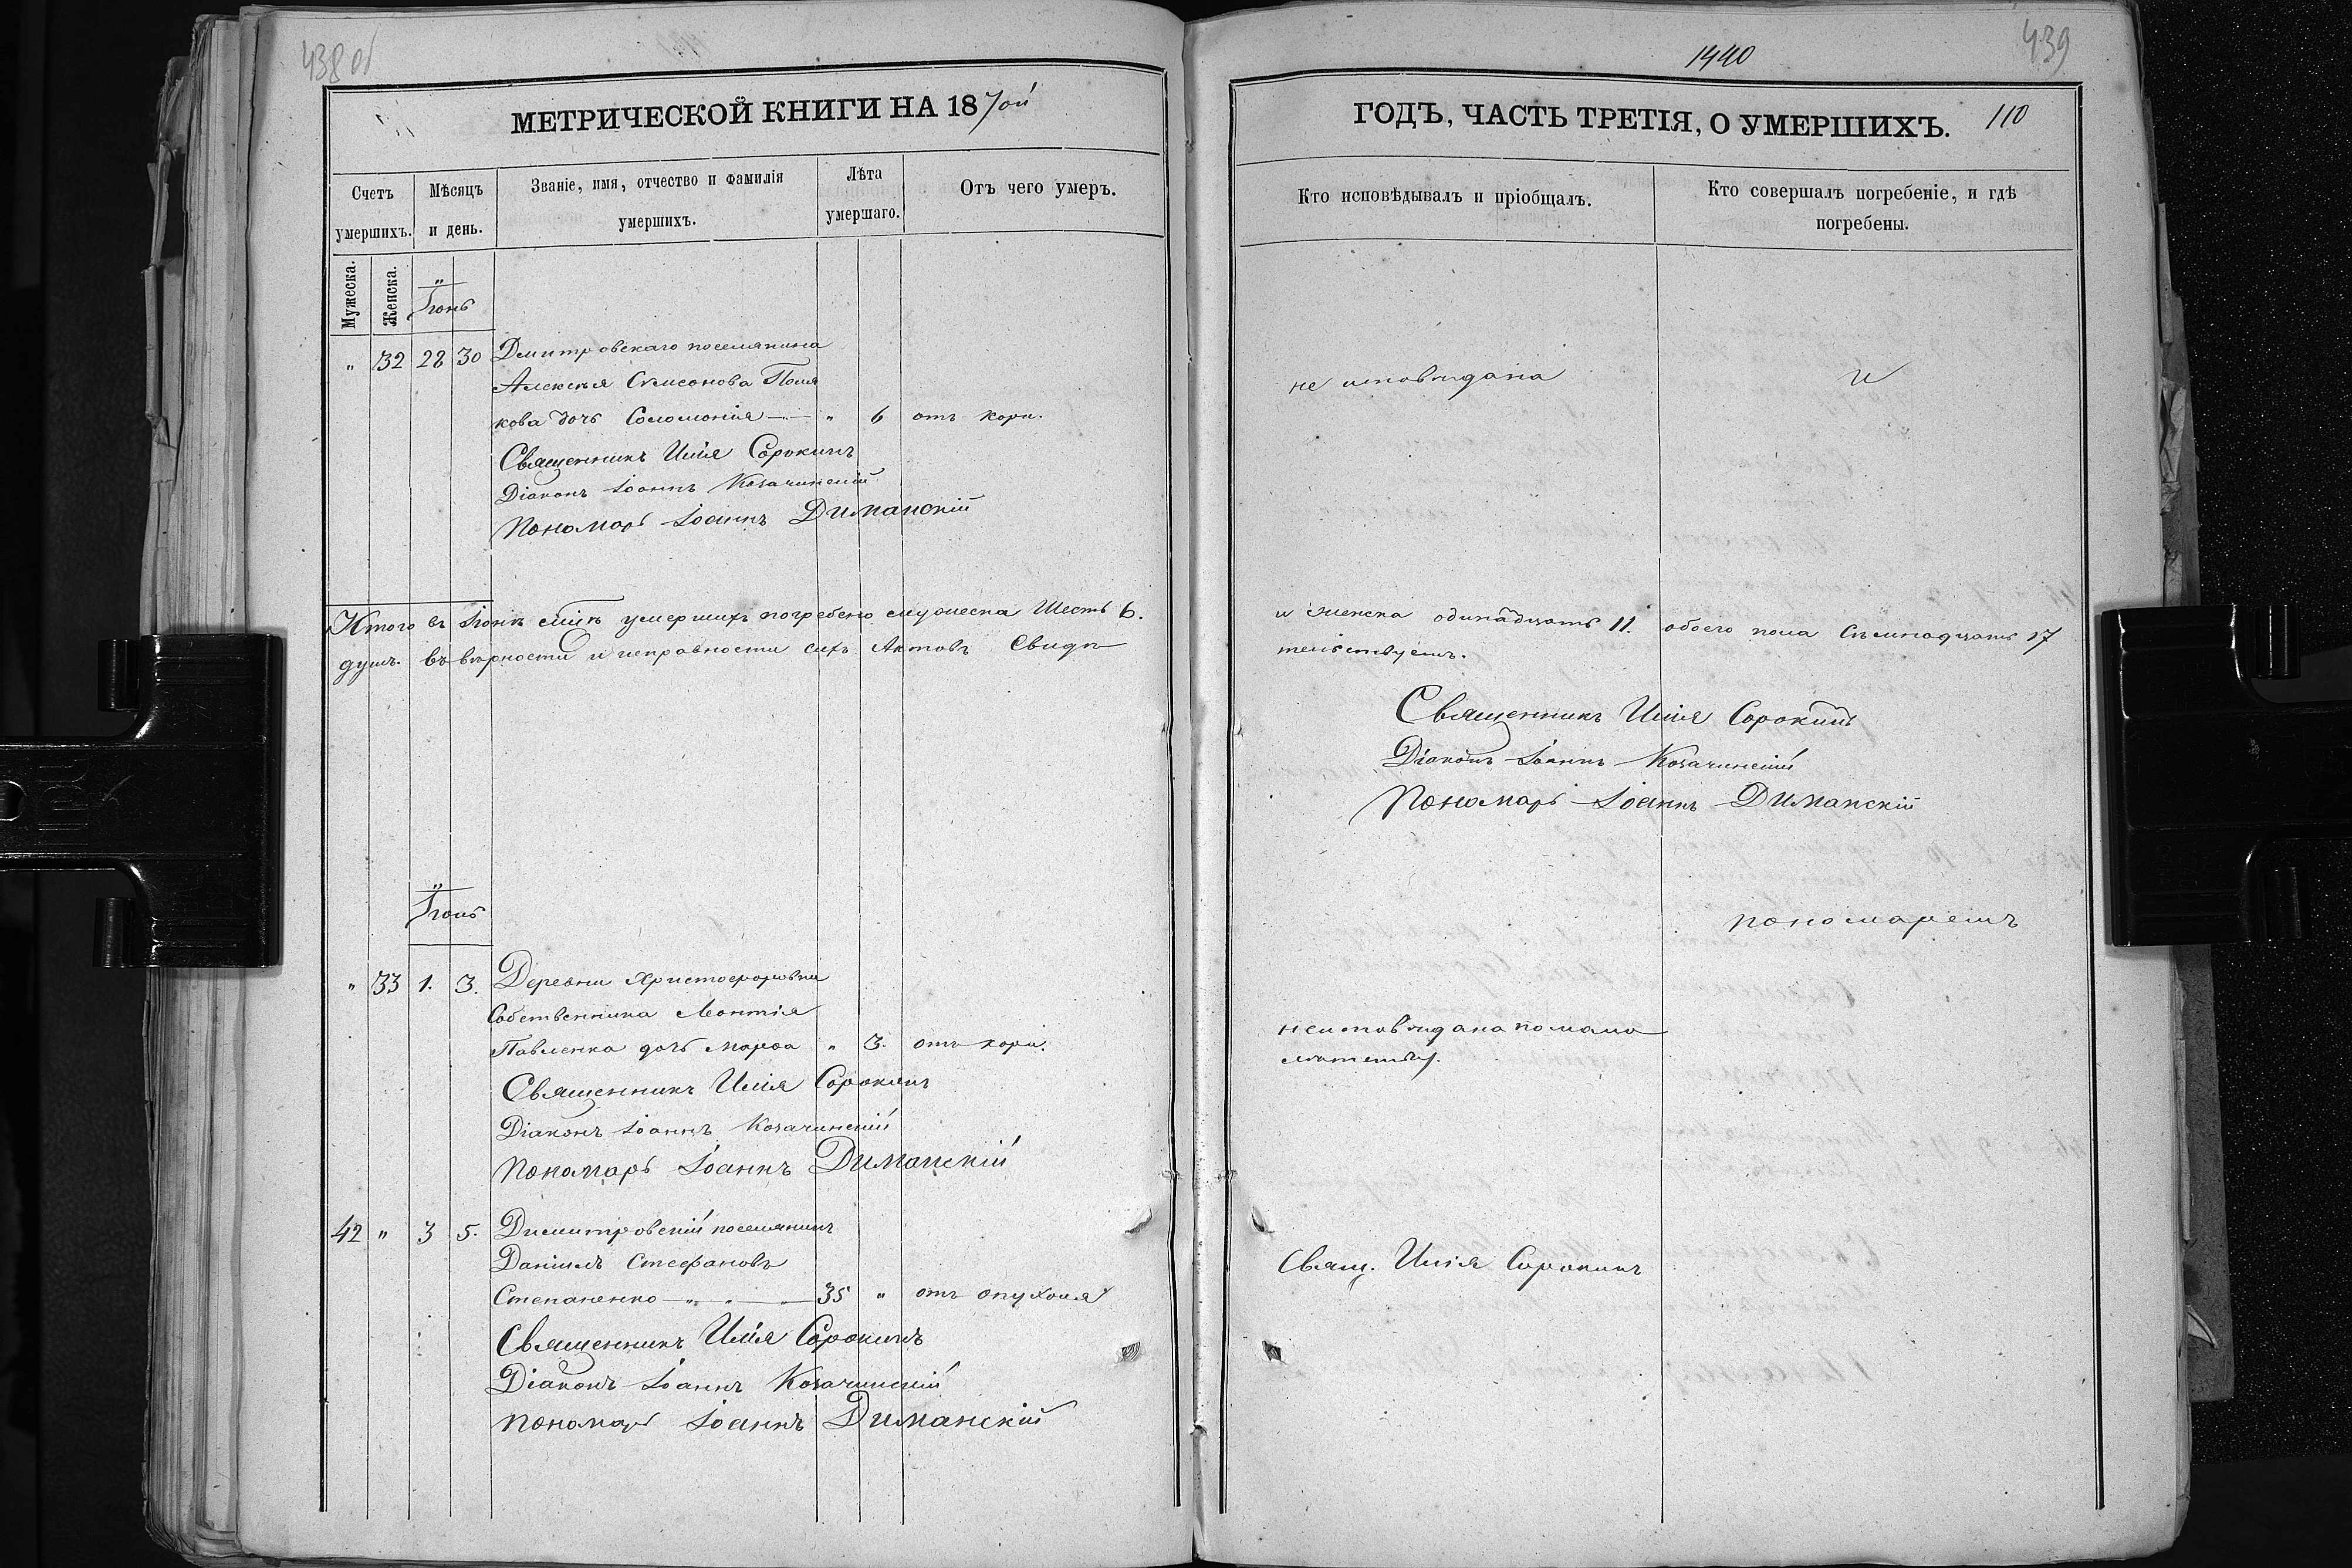 438 об
МЕТРИЧЕСКОЙ КНИГИ НА 1870й
Счетъ умершихъ.
Мѣсяцъ и день.
Званіе, имя, отчество и фамилія умершихъ.
Лѣта умершаго.
Отъ чего умеръ.
Мужеска.
Женска.
" 32 28 30 Дмитровскаго поселянина
Алексѣя Симеонова Поля
кова дочь Соломонія " 6 отъ кори.
Священникъ Илія Сорокинъ
Діаконъ Іоаннъ Козачинскій
Пономарь Іоаннъ Диманскій
Итого въ умершихъ погребено мужеска Шесть 6.
душъ. въ вѣрности и исправности сихъ Актовъ Свидѣ
" 33 1. 3. Деревни Христофоровки
Собственника Леонтія
Павленка дочь Марфа " 3. отъ кори.
Священникъ Илія Сорокинъ
Діаконъ Іоаннъ Козачинскій
Пономарь Іоаннъ Диманскій
42 " 3 5. Димитровскій поселянинъ
Даніилъ Стефановъ
Степаненко 35 " отъ опухоли
Священникъ Илія Сорокинъ
Діаконъ Іоаннъ Козачинскій
Пономарь Іоаннъ Диманскій
1440
439
ГОДЪ, ЧАСТЬ ТРЕТІЯ, О УМЕРШИХЪ. 110
Кто исповѣдывалъ и пріобщалъ.
Кто совершалъ погребеніе, и гдѣ погребены.
не исповѣдана и
и женска одинадцать 11. обоего пола Сѣмнадцать 17
тельствуемъ.
Священникъ Илія Сорокинъ
Діаконъ Іоаннъ Козачинскій
Пономарь Іоаннъ Диманскій
пономаремъ
неисповѣдана по мало
лѣтству.
Свящ. Илія Сорокинъ